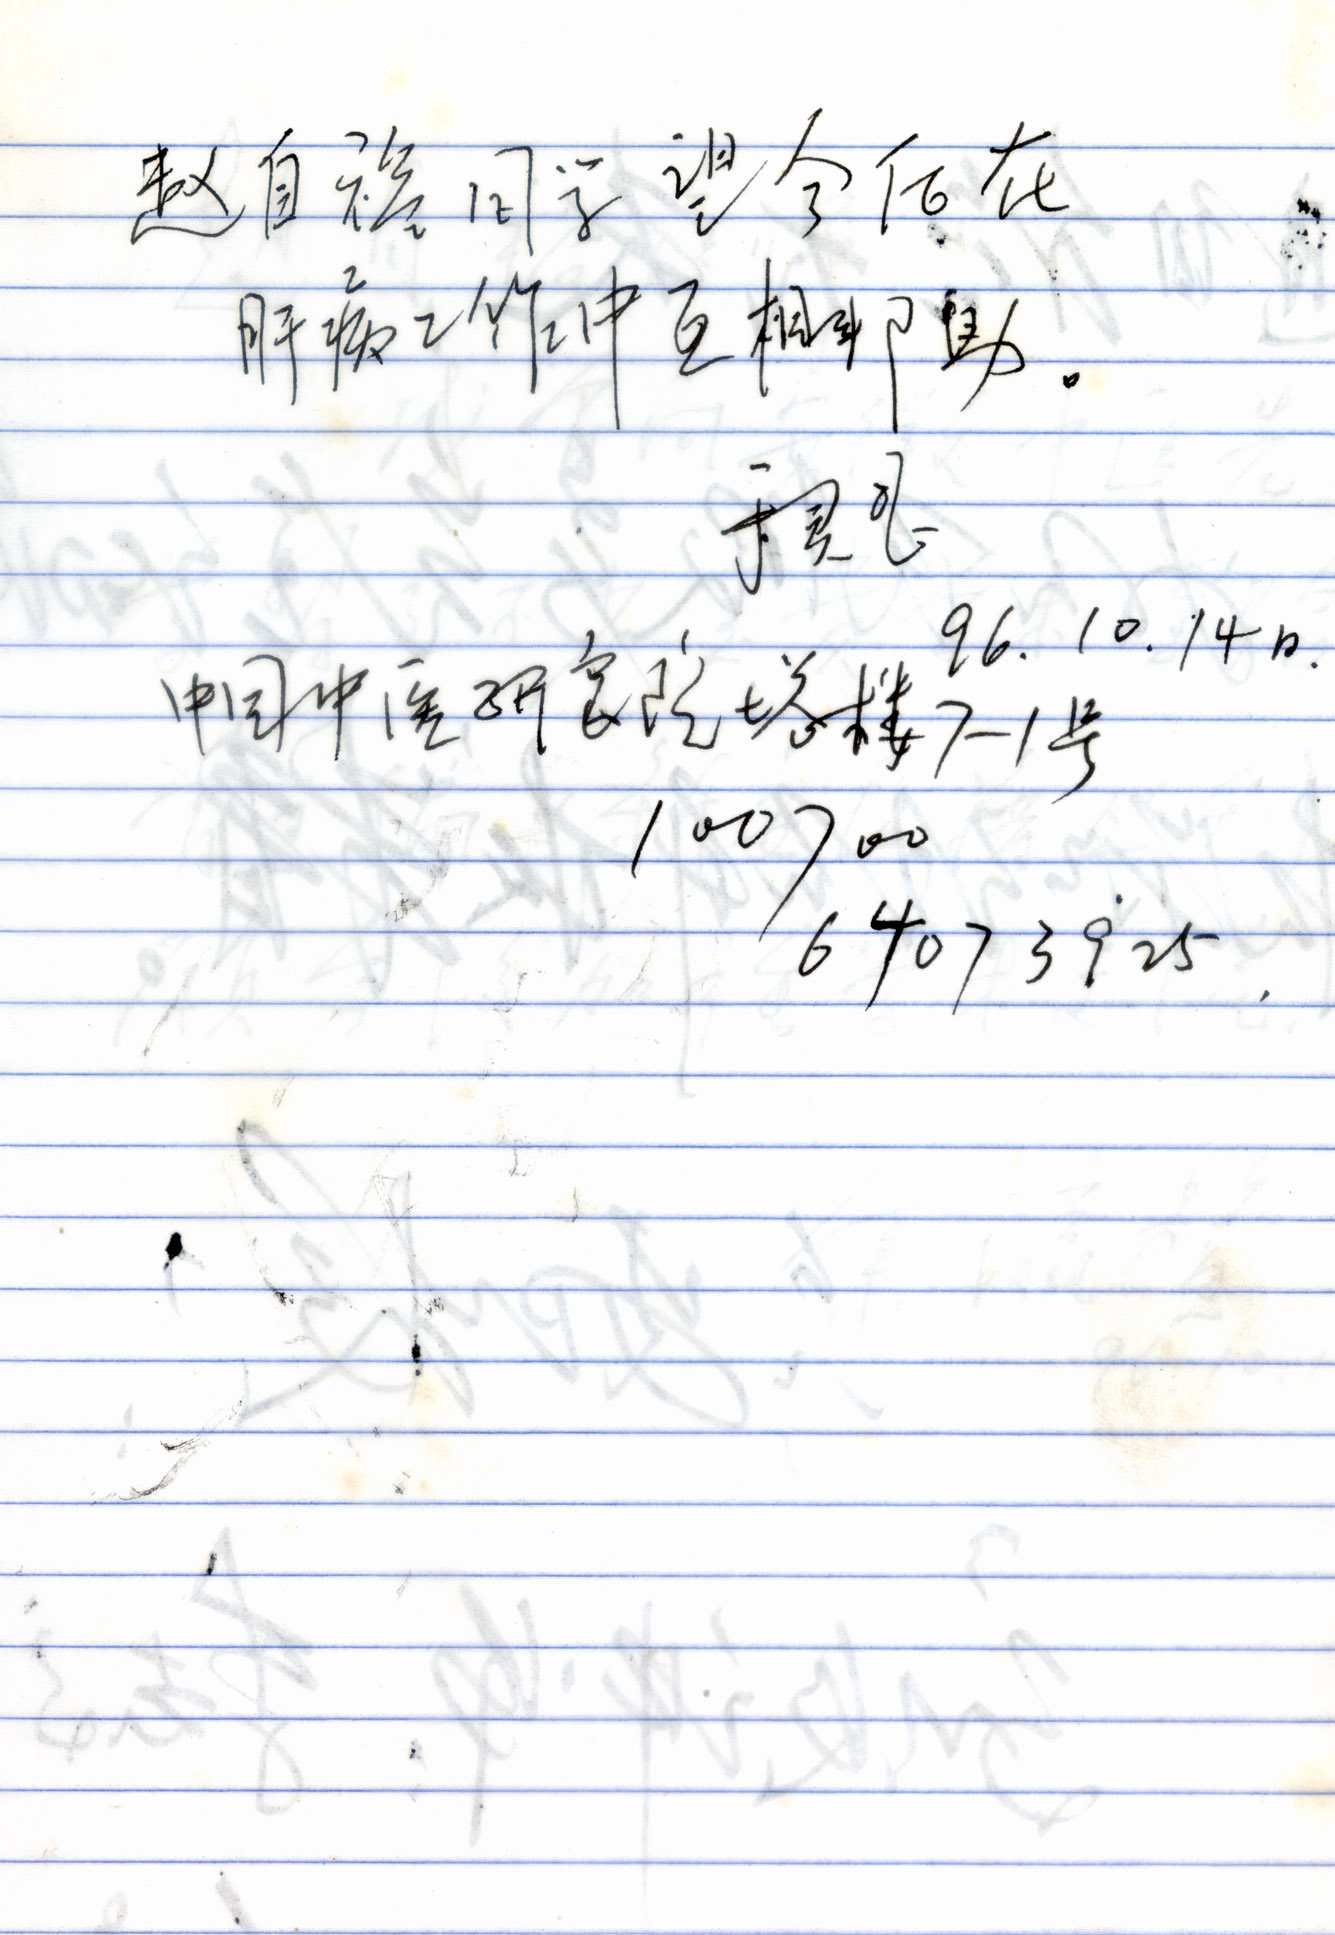 赵自强同学望今后在
肝病工作中互相邦助。
96.10.14日.
中国中医研究院塔楼7-1号
100700
64073925